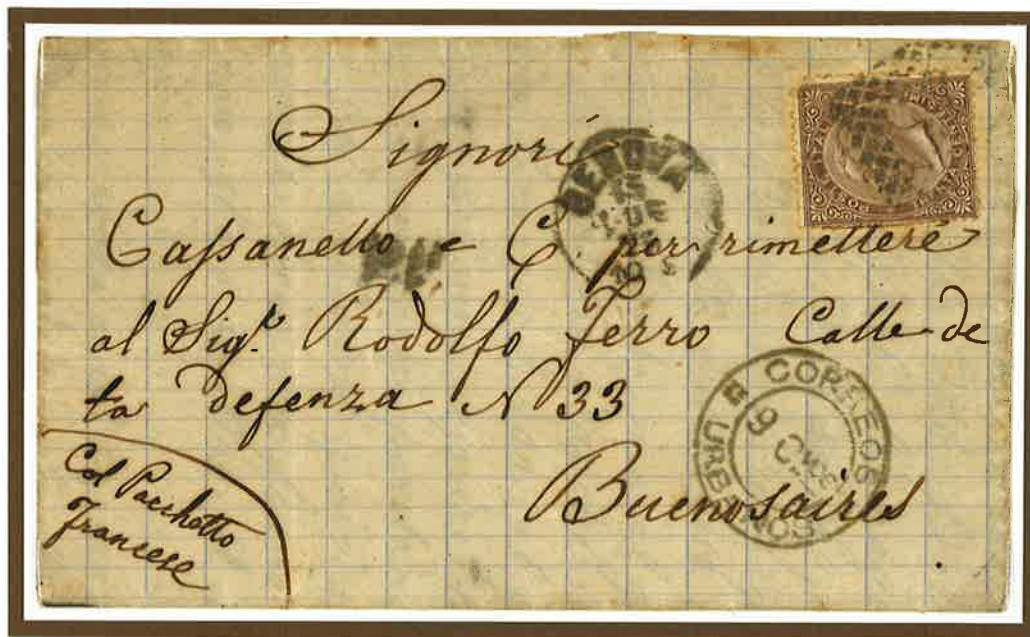 Signori
Cassanello e C. per rimettere
al Sigr. Rodolfo Ferro Calle de
ta defenza N 33
Buenosaires
Col Pacchotto
Francese
GENOVA
CORREOS
URBANOS